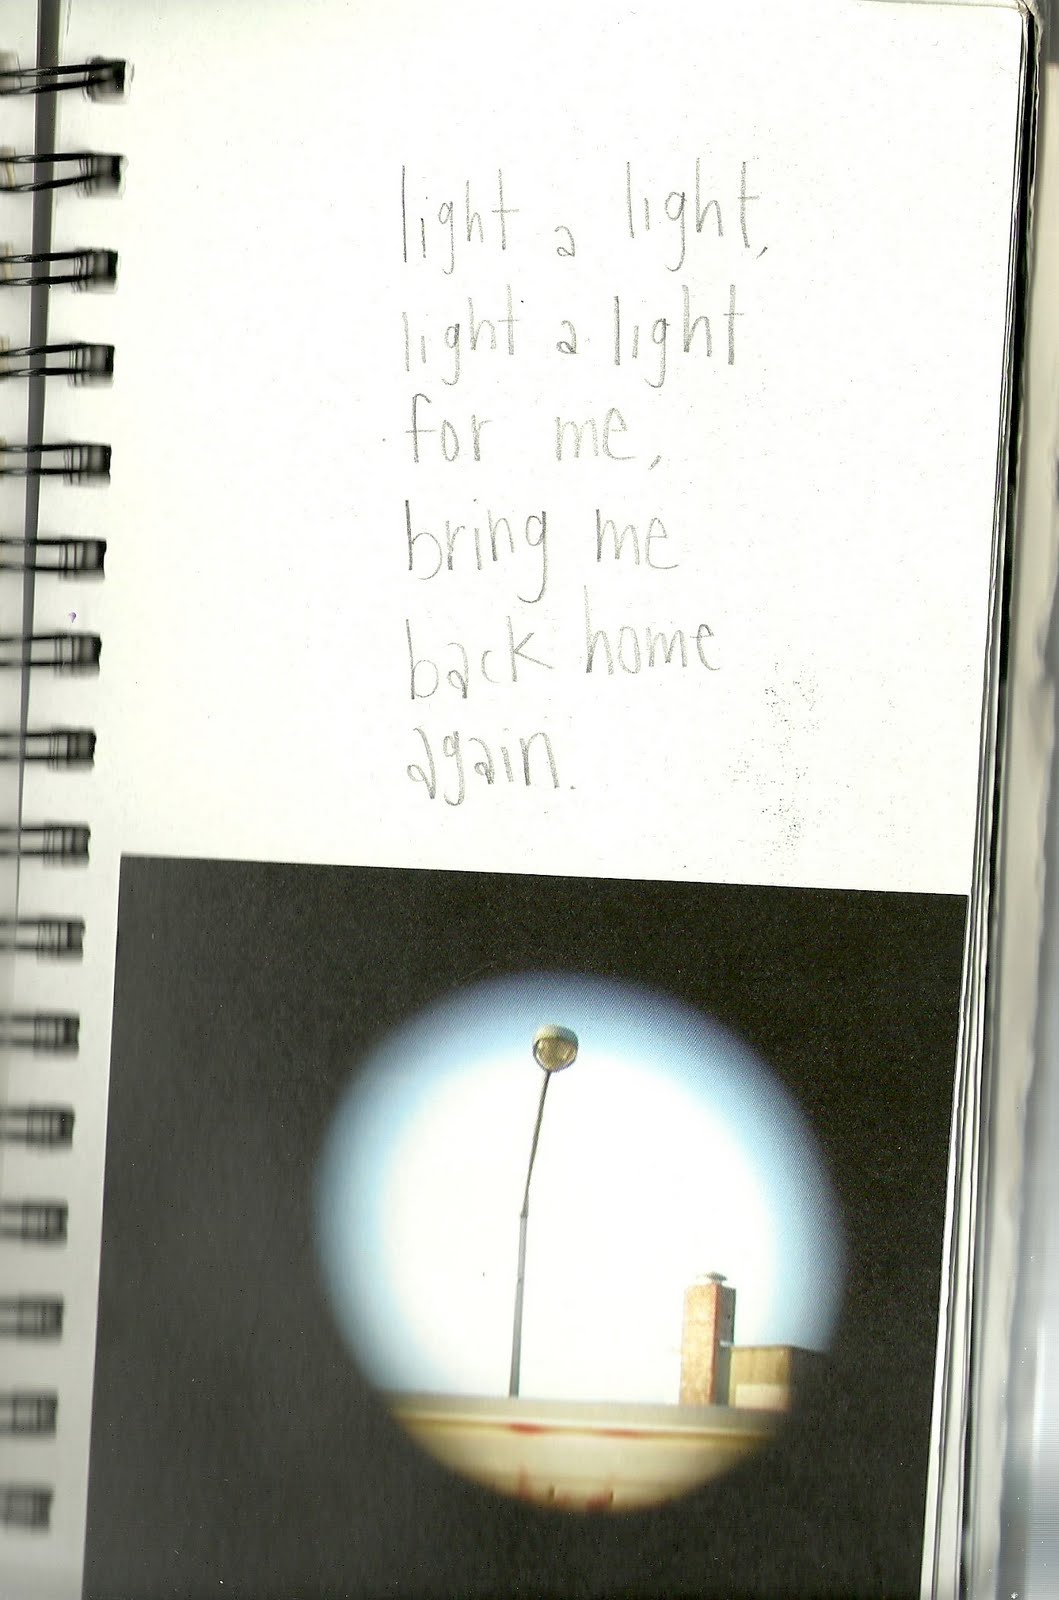 light a light,
light a light
for me,
bring me
back home
again.